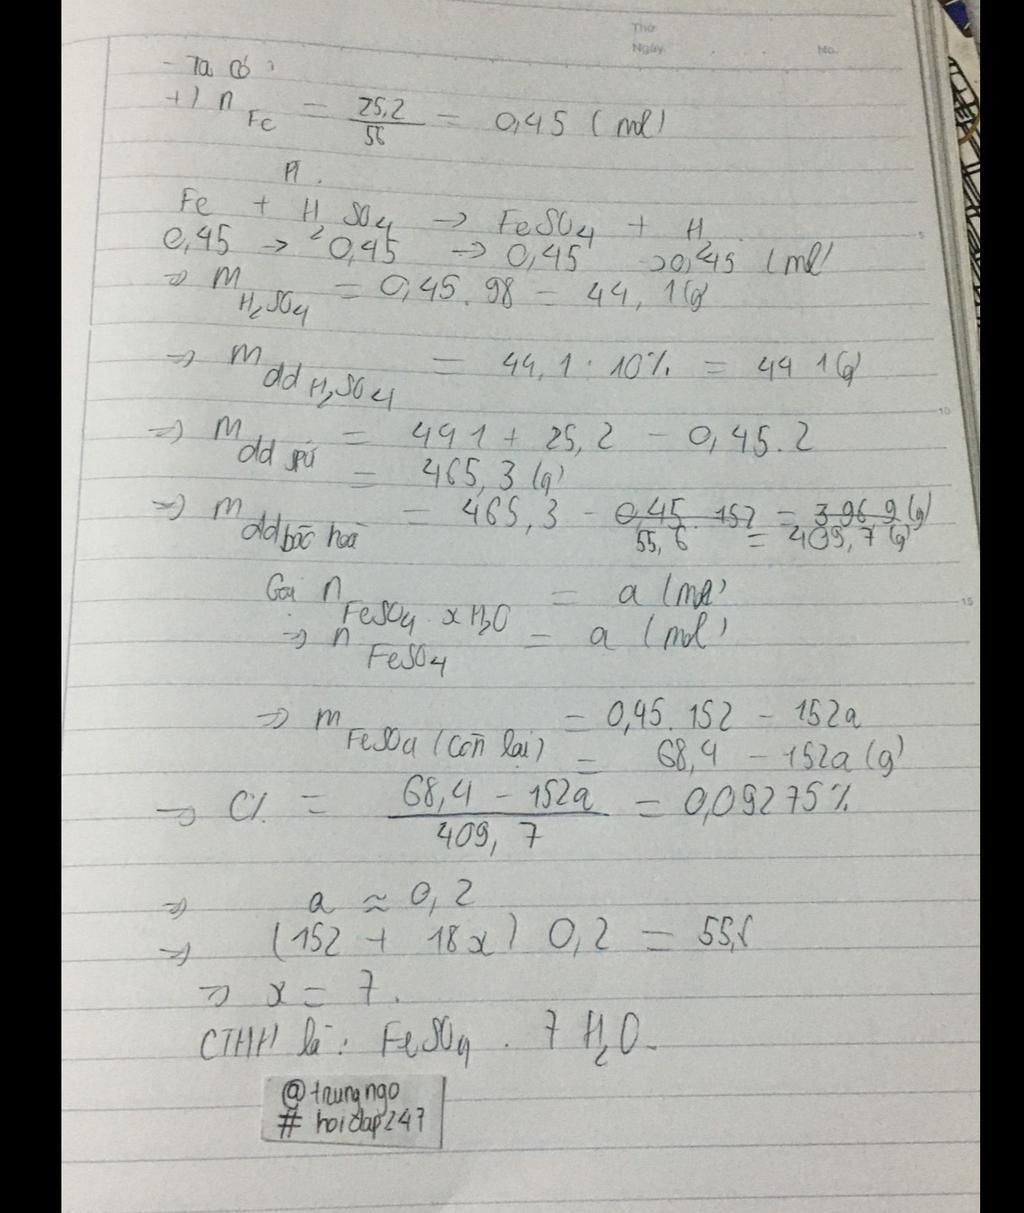 Thứ
Ngày. . . No.
- Ta có :
+) n Fe = 25,2 / 56 = 0,45 (mol)
Pt.
Fe + H2SO4 → FeSO4 + H2
0,45 → 0,45 → 0,45 → 0,45 (mol)
=> m H2SO4 = 0,45. 98 = 44, 1(g)
=> m dd H2SO4 = 44,1 : 10% = 44 1(g)
=> m dd spứ = 441 + 25,2 - 0,45.2
= 465,3 (g)
=> m dd bão hoà = 465,3 - 0,45. 152 = 396,9 (g)
55,6 = 409,7 (g)
Gọi n FeSO4 . xH2O = a (mol)
=> n FeSO4 = a (mol)
=> m FeSO4 (còn lại) = 0,45. 152 - 152a
= 68,4 - 152a (g)
=> C% = 68,4 - 152a / 409, 7 = 0,09275%
=> a ≈ 0,2
=> (152 + 18x) 0,2 = 55,6
=> x = 7.
CTHH là : FeSO4 . 7 H2O.
@trungngo
# hoidap247
5
10
15